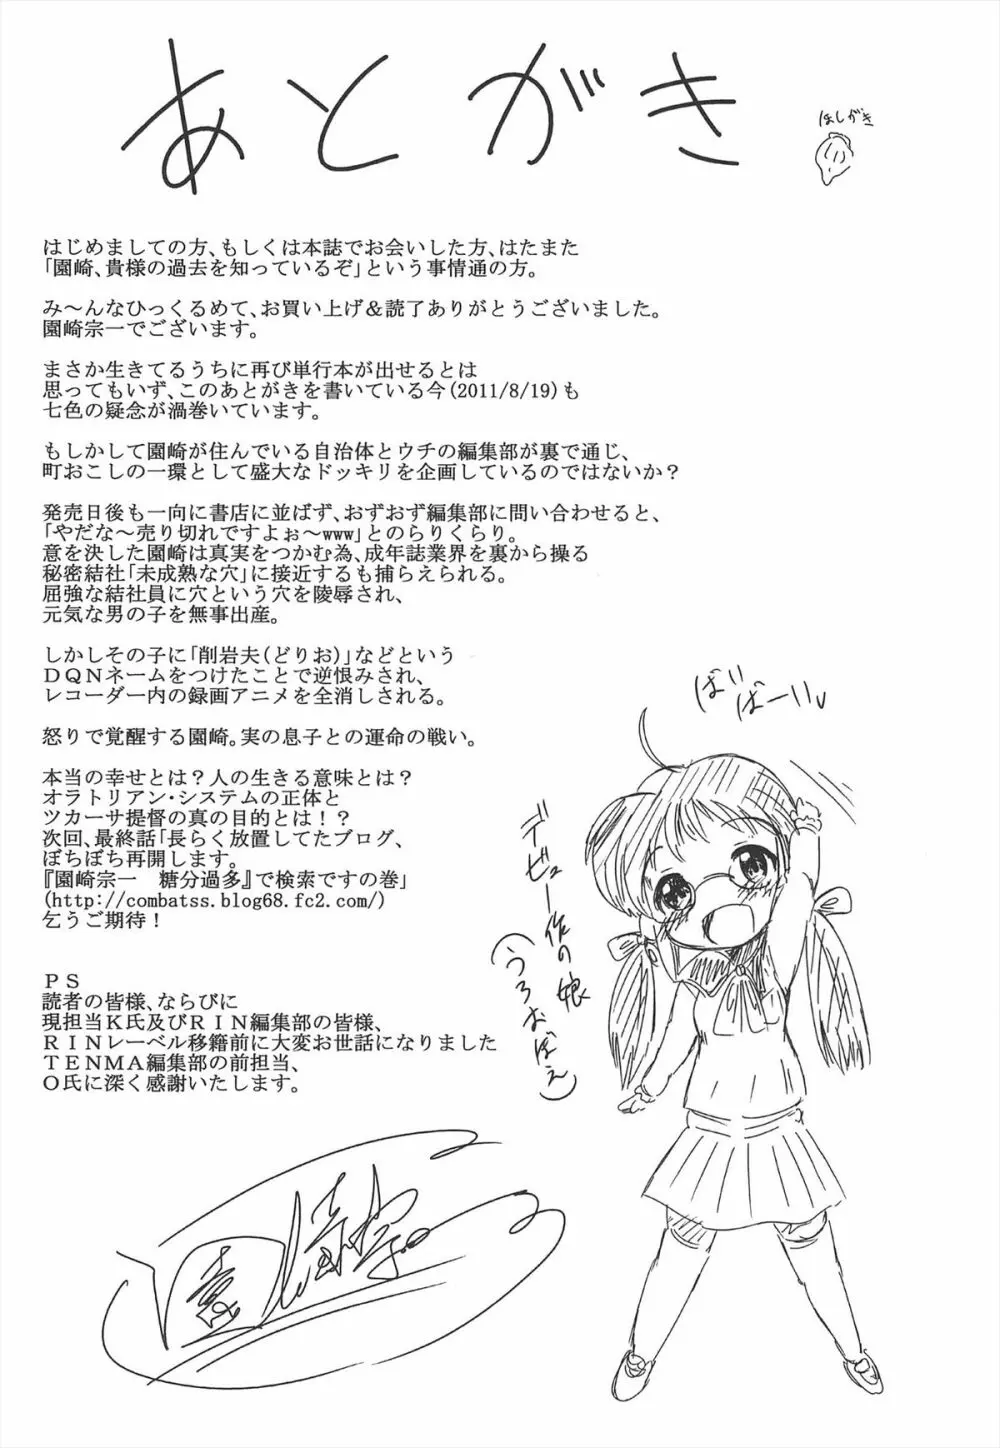 あとがき
ほしがき
はじめましての方、もしくは本誌でお会いした方、はたまた
「園崎、貴様の過去を知っているぞ」という事情通の方。
み～んなひっくるめて、お買い上げ＆読了ありがとうございました。
園崎宗一でございます。
まさか生きてるうちに再び単行本が出せるとは
思ってもいず、このあとがきを書いている今(2011/8/19)も
七色の疑念が渦巻いています。
もしかして園崎が住んでいる自治体とウチの編集部が裏で通じ、
町おこしの一環として盛大なドッキリを企画しているのではないか？
発売日後も一向に書店に並ばず、おずおず編集部に問い合わせると、
「やだな～売り切れですよぉ～www」とのらりくらり。
意を決した園崎は真実をつかむ為、成年誌業界を裏から操る
秘密結社「未成熟な穴」に接近するも捕らえられる。
屈強な結社員に穴という穴を陵辱され、
元気な男の子を無事出産。
しかしその子に「削岩夫(どりお)」などという
ＤＱＮネームをつけたことで逆恨みされ、
レコーダー内の録画アニメを全消しされる。
怒りで覚醒する園崎。実の息子との運命の戦い。
本当の幸せとは？人の生きる意味とは？
オラトリアン・システムの正体と
ツカーサ提督の真の目的とは！？
次回、最終話「長らく放置してたブログ、
ぼちぼち再開します。
『園崎宗一　糖分過多』で検索ですの巻」
(http://combatss.blog68.fc2.com/)
乞うご期待！
ＰＳ
読者の皆様、ならびに
現担当Ｋ氏及びＲＩＮ編集部の皆様、
ＲＩＮレーベル移籍前に大変お世話になりました
ＴＥＮＭＡ編集部の前担当、
Ｏ氏に深く感謝いたします。
ばいばーい
デビュー作の娘
(うろおぼえ)